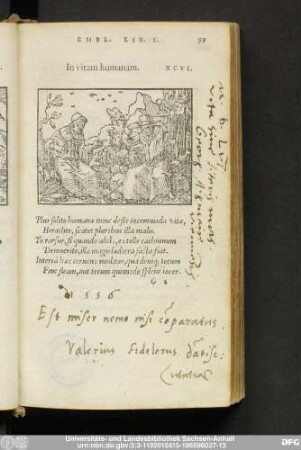 EMBL. LIB. I. 99
In vitam humanam. XCVI.
Plus solito humanæ nunc defle incommoda vitæ,
Heraclite, scatet pluribus illa malis.
Tu rursus, si quando aliàs, extolle cachinnum
Democrite, illa magis ludicra facta fuit.
Interea hæc cernens meditor, qua deniq; tecum
Fine fleam, aut tecum quomodo splene iocer.
G 2
1556
Est miser nemo nisi cõparatus.
Valerius Fidlerus
vita sine
Georg
Universitäts- und Landesbibliothek Sachsen-Anhalt
urn:nbn:de:gbv:3:3-1192015415-186696027-13
DFG